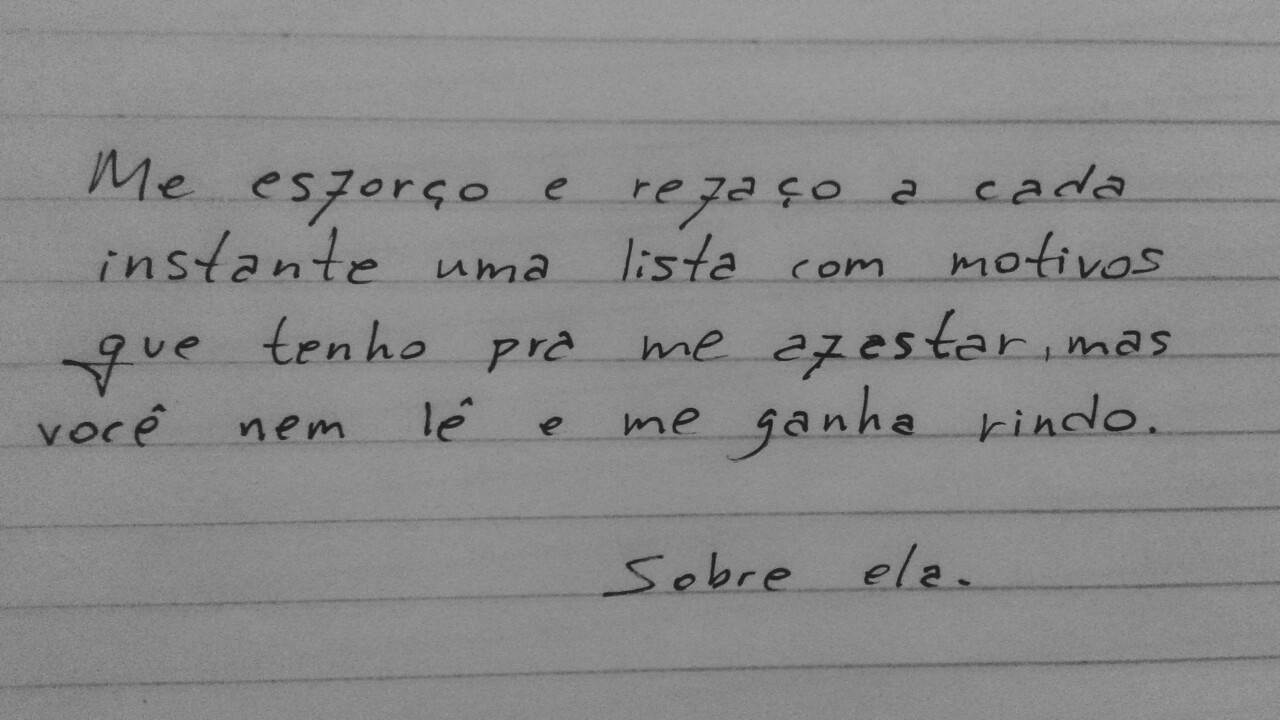 Me esforço e refaço a cada
instante uma lista com motivos
que tenho pra me afastar, mas
você nem lê e me ganha rindo.
Sobre ela.